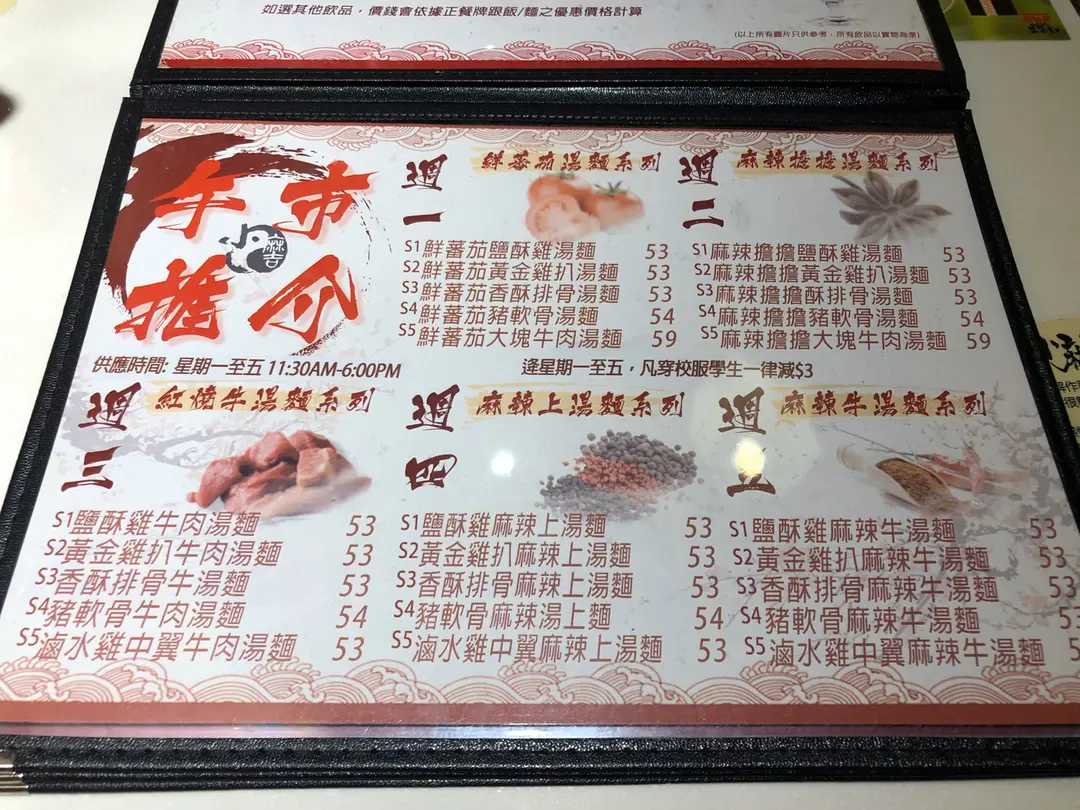 如選其他飲品，價錢會依據正餐牌跟飯/麵之優惠價格計算
(以上所有圖片只供參考，所有飲品以實物為準)
午市
推介
小麻吉
供應時間: 星期一至五 11:30AM-6:00PM
週一
鮮蕃茄湯麵系列
S1鮮蕃茄鹽酥雞湯麵 53
S2鮮蕃茄黃金雞扒湯麵 53
S3鮮蕃茄香酥排骨湯麵 53
S4鮮蕃茄豬軟骨湯麵 54
S5鮮蕃茄大塊牛肉湯麵 59
週二
麻辣擔擔湯麵系列
S1麻辣擔擔鹽酥雞湯麵 53
S2麻辣擔擔黃金雞扒湯麵 53
S3麻辣擔擔酥排骨湯麵 53
S4麻辣擔擔豬軟骨湯麵 54
S5麻辣擔擔大塊牛肉湯麵 59
逢星期一至五，凡穿校服學生一律減$3
週三
紅燒牛湯麵系列
S1鹽酥雞牛肉湯麵 53
S2黃金雞扒牛肉湯麵 53
S3香酥排骨牛湯麵 53
S4豬軟骨牛肉湯麵 54
S5滷水雞中翼牛肉湯麵 53
週四
麻辣上湯麵系列
S1鹽酥雞麻辣上湯麵 53
S2黃金雞扒麻辣上湯麵 53
S3香酥排骨麻辣上湯麵 53
S4豬軟骨麻辣湯上麵 54
S5滷水雞中翼麻辣上湯麵 53
週五
麻辣牛湯麵系列
S1鹽酥雞麻辣牛湯麵 53
S2黃金雞扒麻辣牛湯麵 53
S3香酥排骨麻辣牛湯麵 53
S4豬軟骨麻辣牛湯麵 5
S5滷水雞中翼麻辣牛湯麵 5